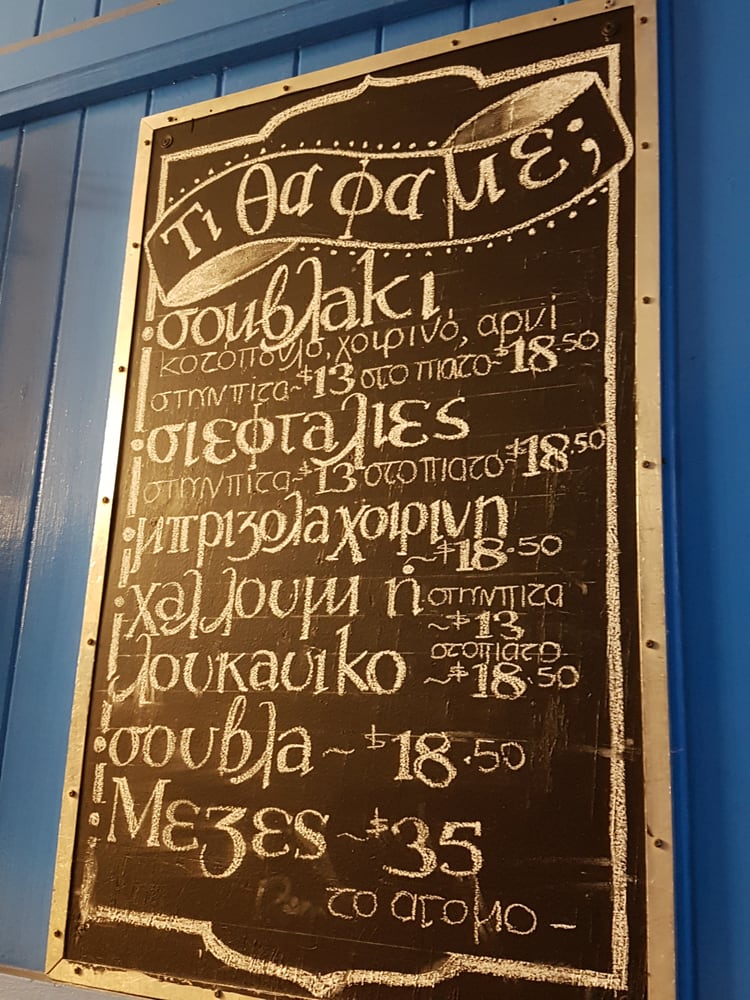 Τι θα φαμε;
σουβλακι
κοτοπουλο, χοιρινό, αρνί
στην πιτα ~ $13 στο πιατο ~ $18.50
σιεφταλιες
στην πιτα ~ $13 στο πιατο ~ $18.50
μπριζολα χοιρινη
~ $18.50
χαλλουμι ή στην πιτα
~ $13
λουκανικο στο πιατο
~ $18.50
σουβλα ~ $18.50
Μεζες ~ $35
το ατομο –